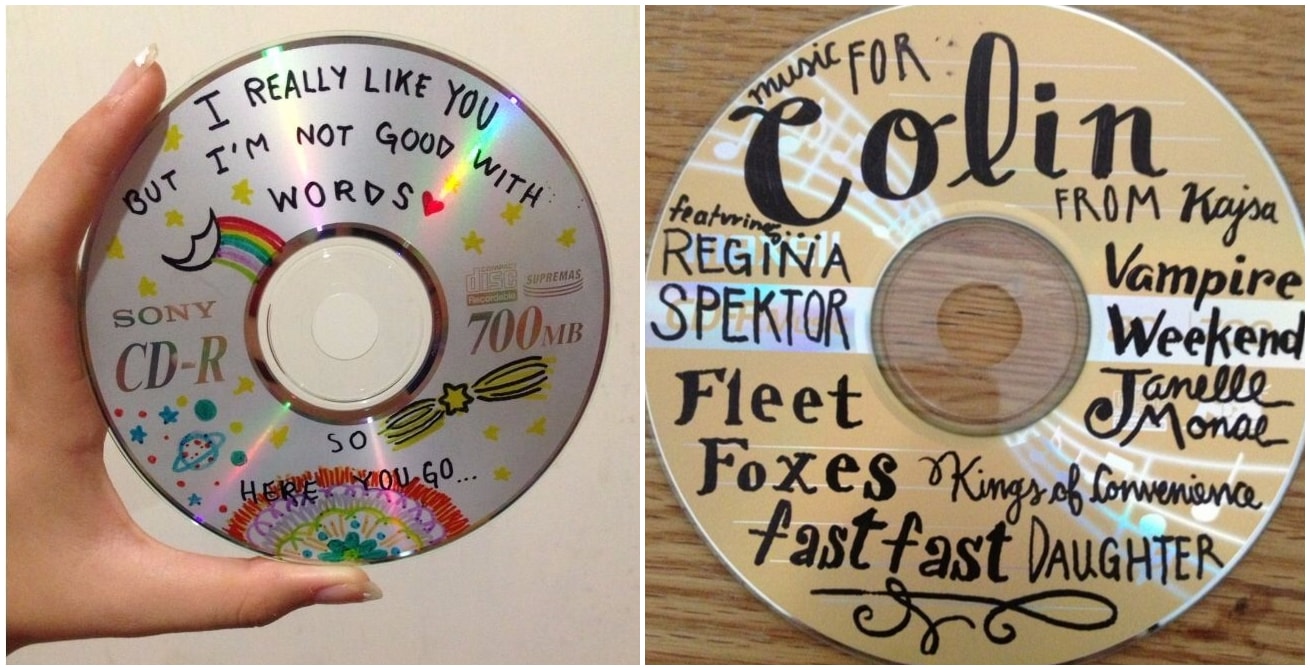 I REALLY LIKE YOU
BUT I'M NOT GOOD WITH
WORDS
SONY
CD-R
COMPACT
disc
Recordable
SUPREMAS
700MB
SO
HERE YOU GO...
music FOR
Colin
FROM Kajsa
featuring...
REGINA
SPEKTOR
Vampire
Weekend
Fleet
Foxes
Janelle
Monae
Kings of Convenience
fast fast DAUGHTER